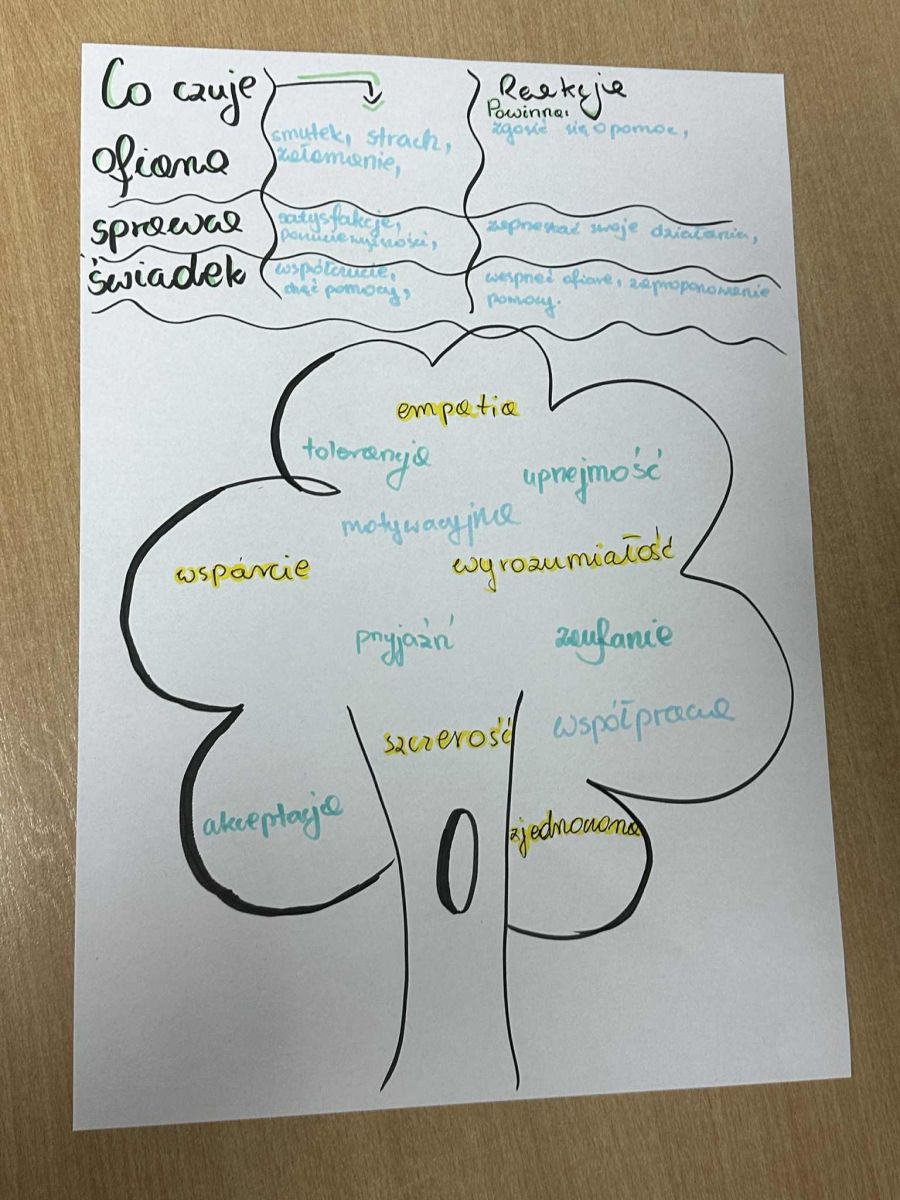 Co czuje
Reakcja
Powinna:
ofiara
smutek, strach,
załamanie,
zgosić się o pomoc,
sprawca
satysfakcje,
poczucie wyższości,
zaprzestać swoje działania,
świadek
współczucie,
chęć pomocy,
wesprzeć ofiarę, zaproponowanie
pomocy.
empatia
tolerancja
uprzejmość
motywacyjna
wsparcie
wyrozumiałość
przyjaźń
zaufanie
szczerość
współpraca
akceptacja
zjednoczona